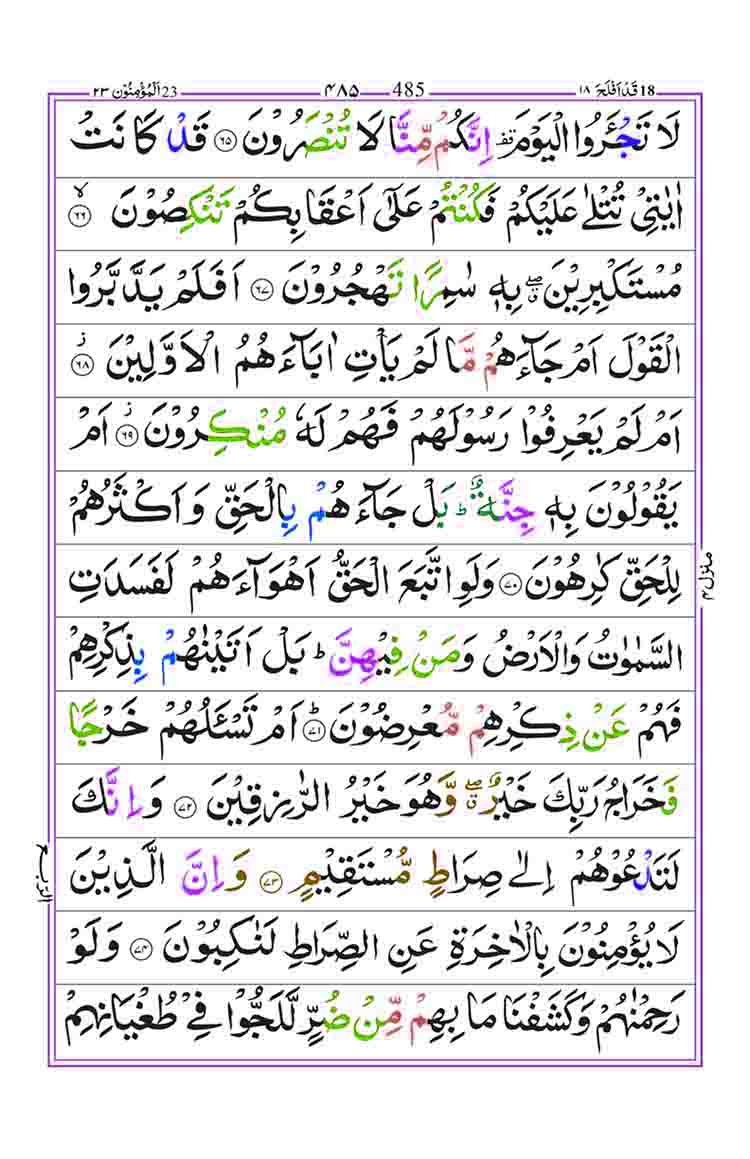 اَلْمُؤْمِنُوْن 23 ٢٣ ٤٨٥ 485 18 قَدْ اَفْلَحَ ١٨
لَا تَجْـَٔرُوا الْيَوْمَ ۫ اِنَّكُمْ مِّنَّا لَا تُنْصَرُوْنَ ٦٥ قَدْ كَانَتْ
اٰيٰتِيْ تُتْلٰى عَلَيْكُمْ فَكُنْتُمْ عَلٰٓى اَعْقَابِكُمْ تَنْكِصُوْنَ ۙ ٦٦
مُسْتَكْبِرِيْنَ ۖ بِهٖ سٰمِرًا تَهْجُرُوْنَ ٦٧ اَفَلَمْ يَدَّبَّرُوا
الْقَوْلَ اَمْ جَآءَهُمْ مَّا لَمْ يَاْتِ اٰبَآءَهُمُ الْاَوَّلِيْنَ ؗ ٦٨
اَمْ لَمْ يَعْرِفُوْا رَسُوْلَهُمْ فَهُمْ لَهٗ مُنْكِرُوْنَ ؗ ٦٩ اَمْ
يَقُوْلُوْنَ بِهٖ جِنَّةٌ ؕ بَلْ جَآءَهُمْ بِالْحَقِّ وَاَكْثَرُهُمْ
لِلْحَقِّ كٰرِهُوْنَ ٧٠ وَلَوِ اتَّبَعَ الْحَقُّ اَهْوَآءَهُمْ لَفَسَدَتِ
السَّمٰوٰتُ وَالْاَرْضُ وَمَنْ فِيْهِنَّ ؕ بَلْ اَتَيْنٰهُمْ بِذِكْرِهِمْ
فَهُمْ عَنْ ذِكْرِهِمْ مُّعْرِضُوْنَ ؕ ٧١ اَمْ تَسْـَٔلُهُمْ خَرْجًا
فَخَرَاجُ رَبِّكَ خَيْرٌ ۖ وَّهُوَ خَيْرُ الرّٰزِقِيْنَ ٧٢ وَاِنَّكَ
لَتَدْعُوْهُمْ اِلٰى صِرَاطٍ مُّسْتَقِيْمٍ ٧٣ وَاِنَّ الَّذِيْنَ
لَا يُؤْمِنُوْنَ بِالْاٰخِرَةِ عَنِ الصِّرَاطِ لَنٰكِبُوْنَ ٧٤ وَلَوْ
رَحِمْنٰهُمْ وَكَشَفْنَا مَا بِهِمْ مِّنْ ضُرٍّ لَّلَجُّوْا فِيْ طُغْيَانِهِمْ
منزل ٤
الربع